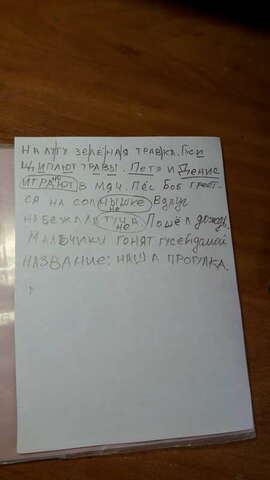 НА ЛУГУ ЗЕЛЕНАЯ ТРАВКА. ГУСИ
ЩИПАЮТ ТРАВЫ. ПЕТЯ И ДЕНИС
ИГРАЮТ В МЯЧ. ПЁС БОБ ГРЕЕТ-
СЯ НА СОЛНЫШКЕ ВДРУГ
НАБЕЖАЛА ТУЧА ПОШЁЛ ДОЖДЬ.
МАЛЬЧИКИ ГОНЯТ ГУСЕЙ ДОМОЙ
НАЗВАНИЕ: НАША ПРОГУЛКА.